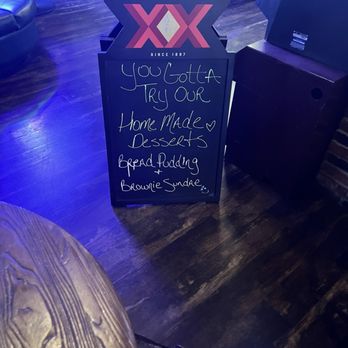 XX
SINCE 1897
You Gotta
Try Our
Home Made
Desserts
Bread Pudding
+
Brownie Sundae